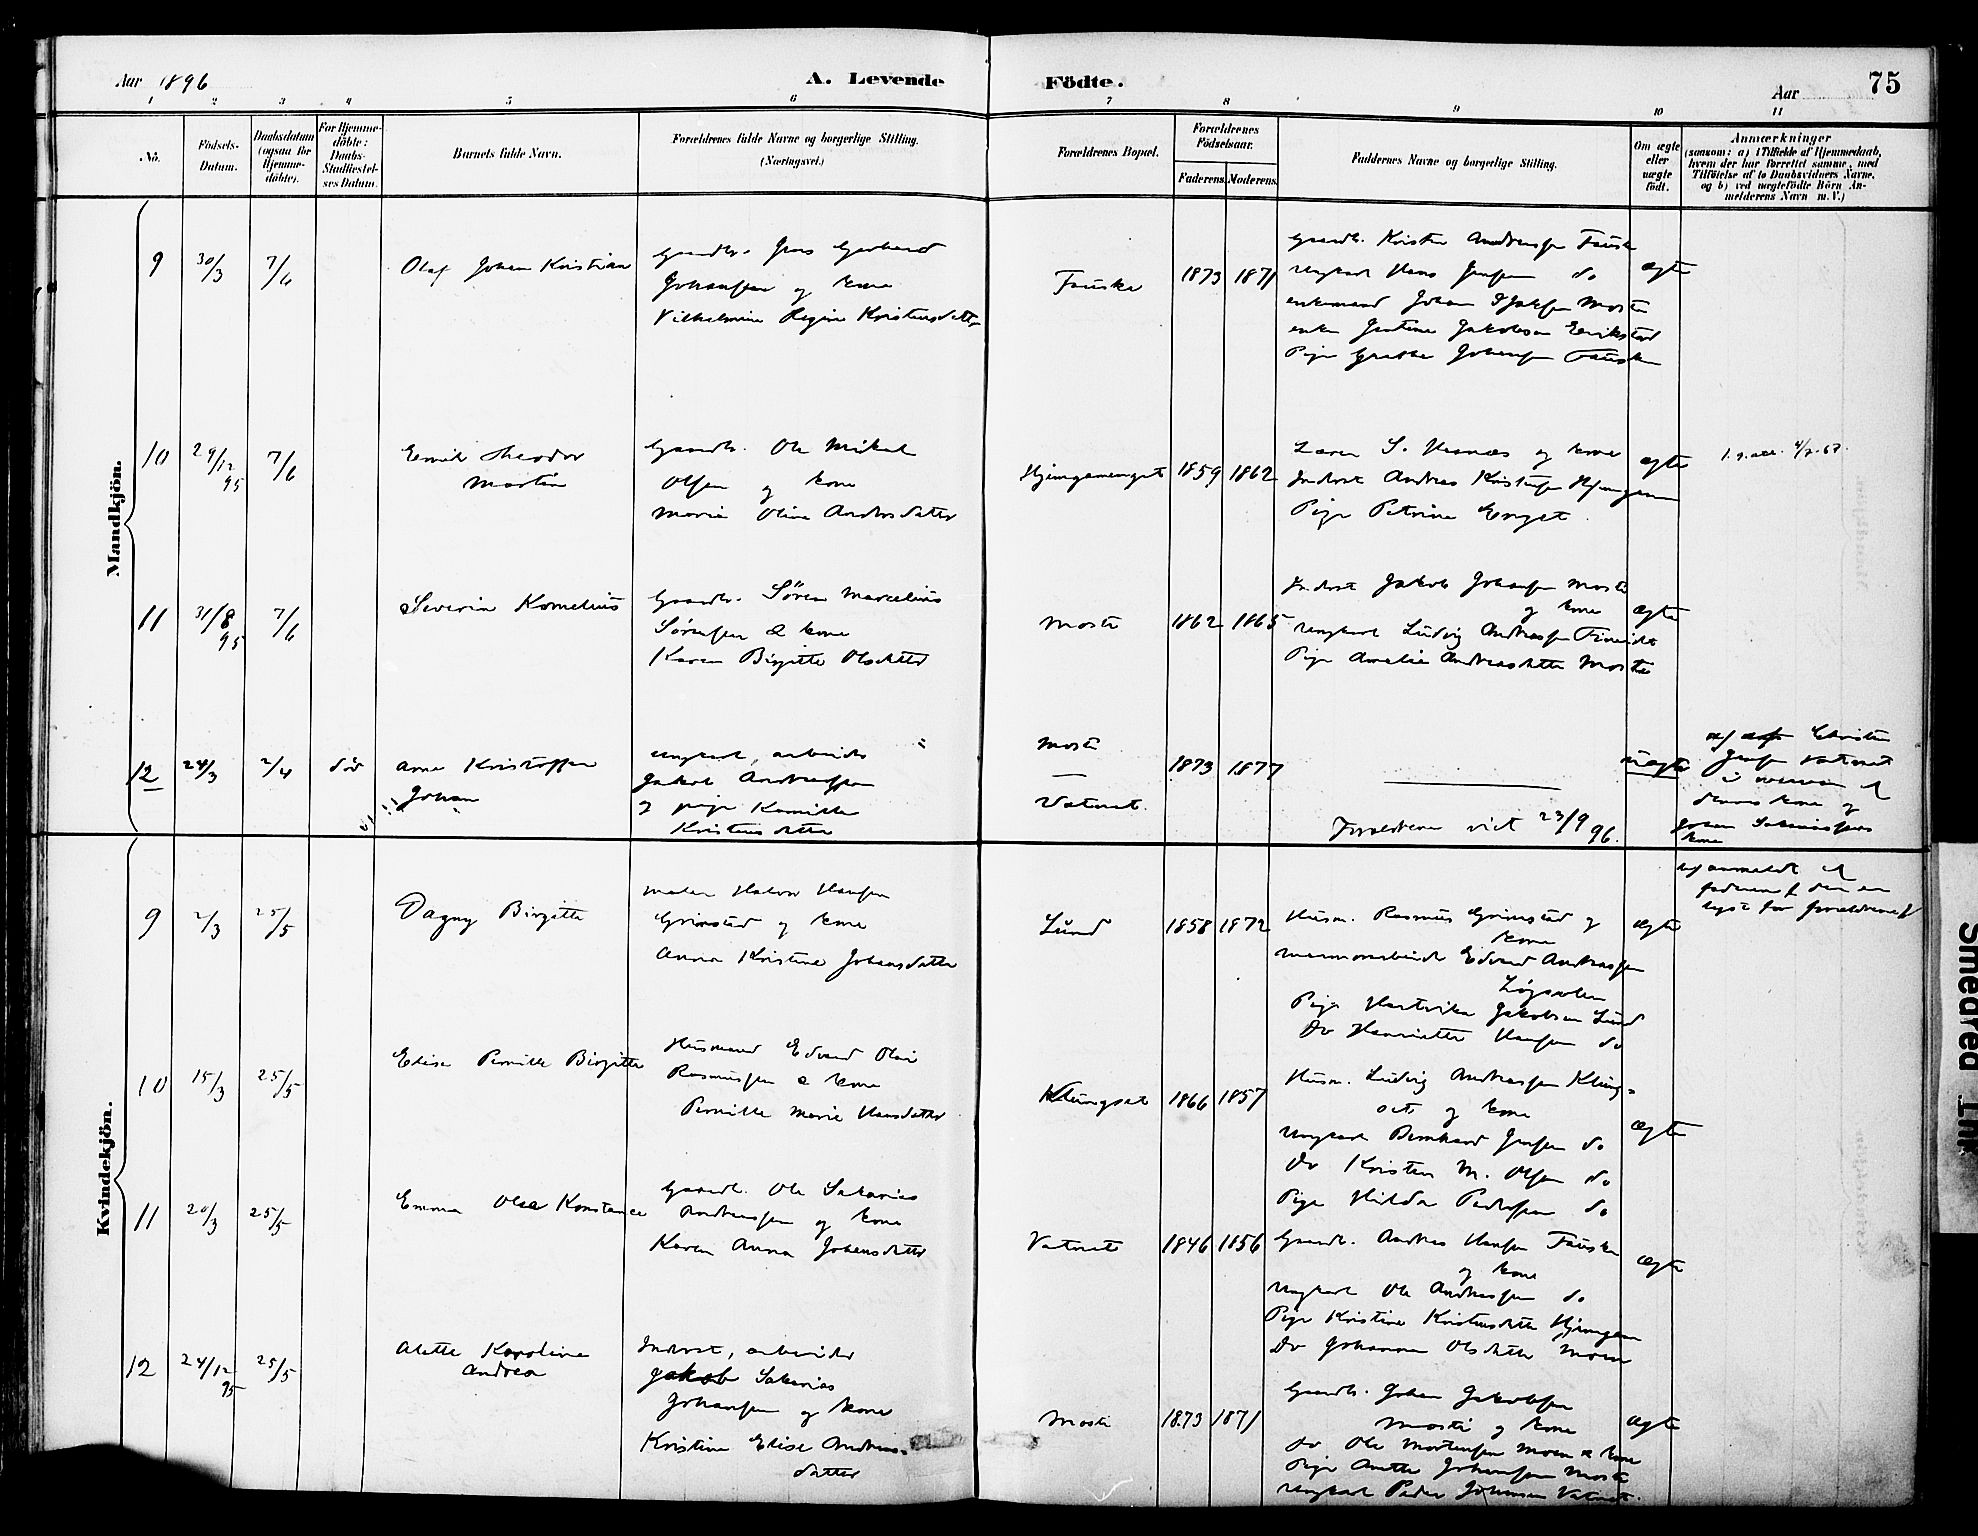 Aar 1896
A. Levende
Födte.
Aar
75
1 2 3 4 5 6 7 8 9 10 11
No.
Födsels-
Datum.
Daabsdatum
(ogsaa for
Hjemme-
döbte).
For Hjemme-
döbte:
Daabs-
Stadfæstel-
ses Datum.
Barnets fulde Navn.
Forældrenes fulde Navne og borgerlige Stilling.
(Næringsvei.)
Forældrenes Bopæl.
Forældrenes
Födselsaar.
Faderens. Moderens.
Faddernes Navne og borgerlige Stilling.
Om ægte
eller
uægte
födt.
Anmærkninger
(saasom: a) i Tilfælde af Hjemmedaab,
hvem der har forrettet samme, med
Tilföielse af to Daabsvidners Navne,
og b) ved uægtefödte Börn An-
melderens Navn m. V.)
Mandkjön.
9 30/3 7/6
Olaf Johan Kristian
Gaardbr. Jens Gerhard
Johansen og kone
Vilhelmine Regine Kristensdatter
Fauske
1873 1871
Gaardb. Kristen Andreassen Fauske
Ungkarl Hans Jensen do
enkemand Johan Moste
enke Jakobsen Erikstad
Pige Grethe Johansen Fauske
ægte
10 29/12 95 7/6
Henrik Theodor
Martin
Gaardb. Ole Mikal
Olsen og kone
Marie Olina Andersdatter
Hjemgamenget
1859 1862
Lærer S. Hesnæs og kone
Inderst Andreas Kristensen
Pige Petrine Enget
ægte
11 31/8 95 7/6
Severin Kornelius
Gaardb. Søren Marcelius
Sørensen & kone
Karen Birgitte Olsdatter
Moste
1862 1865
Inderst Jakob Johansen Moste
og kone
Ungkarl Ludvig Andreassen Fineidet
Pige Amelie Andreasdatter Moste
ægte
12 24/3 2/4 død
Arne Kristoffer
Johan
ungkarl, arbeider
Jakob Andreassen
og pige Kamilla
Kristensdatter
Moste
—
Vatnet
1873 1877
Forældrene viet 23/9 96.
uægte
Christen
Jensen Vatnet
i nærvær af
dennes kone og
Johan Sakariassens
kone
Kvindekjön.
9 2/3 25/5
Dagny Birgitte
maler Halvor Hansen
Grimstad og kone
Anna Kristine Johansdatter
Lund
1858 1872
Husm. Rasmus Grimstad og
kone
marmorarbeider Edvard Andreassen
Løgavlen
Pige Hartvika Jakobsen Lund
Do Henriette Hansen do
ægte
anmeldt af
faderen
lyst for forældrene
10 15/3 25/5
Elise Pernille Birgitte
Husmand Edvard Olai
Rasmussen & kone
Pernille Marie Hansdatter
Klungset
1866 1857
Husm. Ludvig Andreassen Klung-
set og kone
Ungkarl Bernhard Jensen do
Do Kristen M. Olsen do
Pige Hilda Pedersen do
ægte
11 20/3 25/5
Emma Olea Konstance
Gaardb. Ole Sakarias
Andreassen og kone
Karen Anna Johansdatter
Vatnet
1846 1856
Gaardb. Andreas Hansen Fauske
og kone
Ungkarl Ole Andreassen do
Pige Kristine Kristensdatter Hjemgam
Do Johanna Olsdatter Moen
ægte
12 24/12 95 25/5
Alette Karoline
Andrea
Inderst, arbeider
Jakob Sakarias
Johansen og kone
Kristine Elise Andreas-
datter
Moste
1873 1871
Gaardb. Johan Jakobsen
Moste og kone
do Ole Mortensen Moen & kone
Pige Anette Johansen Moste
Ungkarl Peder Johansen Vatnet
ægte
Smeared Ink